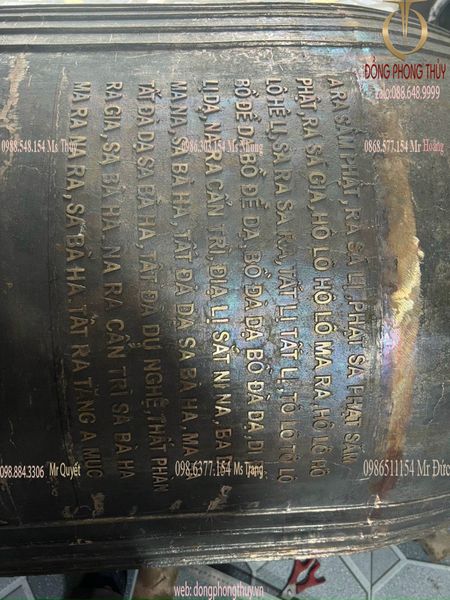 A RA SÂM PHẬT, RA SÁ LỊ, PHẠT SA PHẠT SÂM
PHẬT, RA SÁ GIA, HÔ LÔ HÔ LÔ MA RA, HÔ LÔ HÔ
LÔ HÊ LỊ, SA RA SA RA, TẤT LỊ TẤT LỊ, TÔ LÔ TÔ LÔ
BỒ ĐỀ DẠ, BỒ ĐỀ DẠ, BỒ ĐÀ DẠ BỒ ĐÀ DẠ, DI
LỊ DẠ, NA RA CẨN TRÌ, ĐỊA LỊ SẮT NI NA, BA DẠ
MA NA, SA BÀ HA, TẤT ĐÀ DẠ SA BÀ HA, MA
TẤT ĐÀ DẠ SA BÀ HA, TẤT ĐÀ DU NGHỆ, THẤT PHÀN
RA GIA, SA BÀ HA. NA RA CẨN TRÌ SA BÀ HA
MA RA NA RA, SA BÀ HA. TẤT RA TĂNG A MỤC
ĐỒNG PHONG THỦY
zalo:088.648.9999
0988.548.154 Ms Thủy
0986.303.154 Ms Nhung
0868.577.154 Mr Hoàng
098.884.3306 Mr Quyết
098.6377.154 Ms Trang
0986511154 Mr Đức
web: dongphongthuy.vn